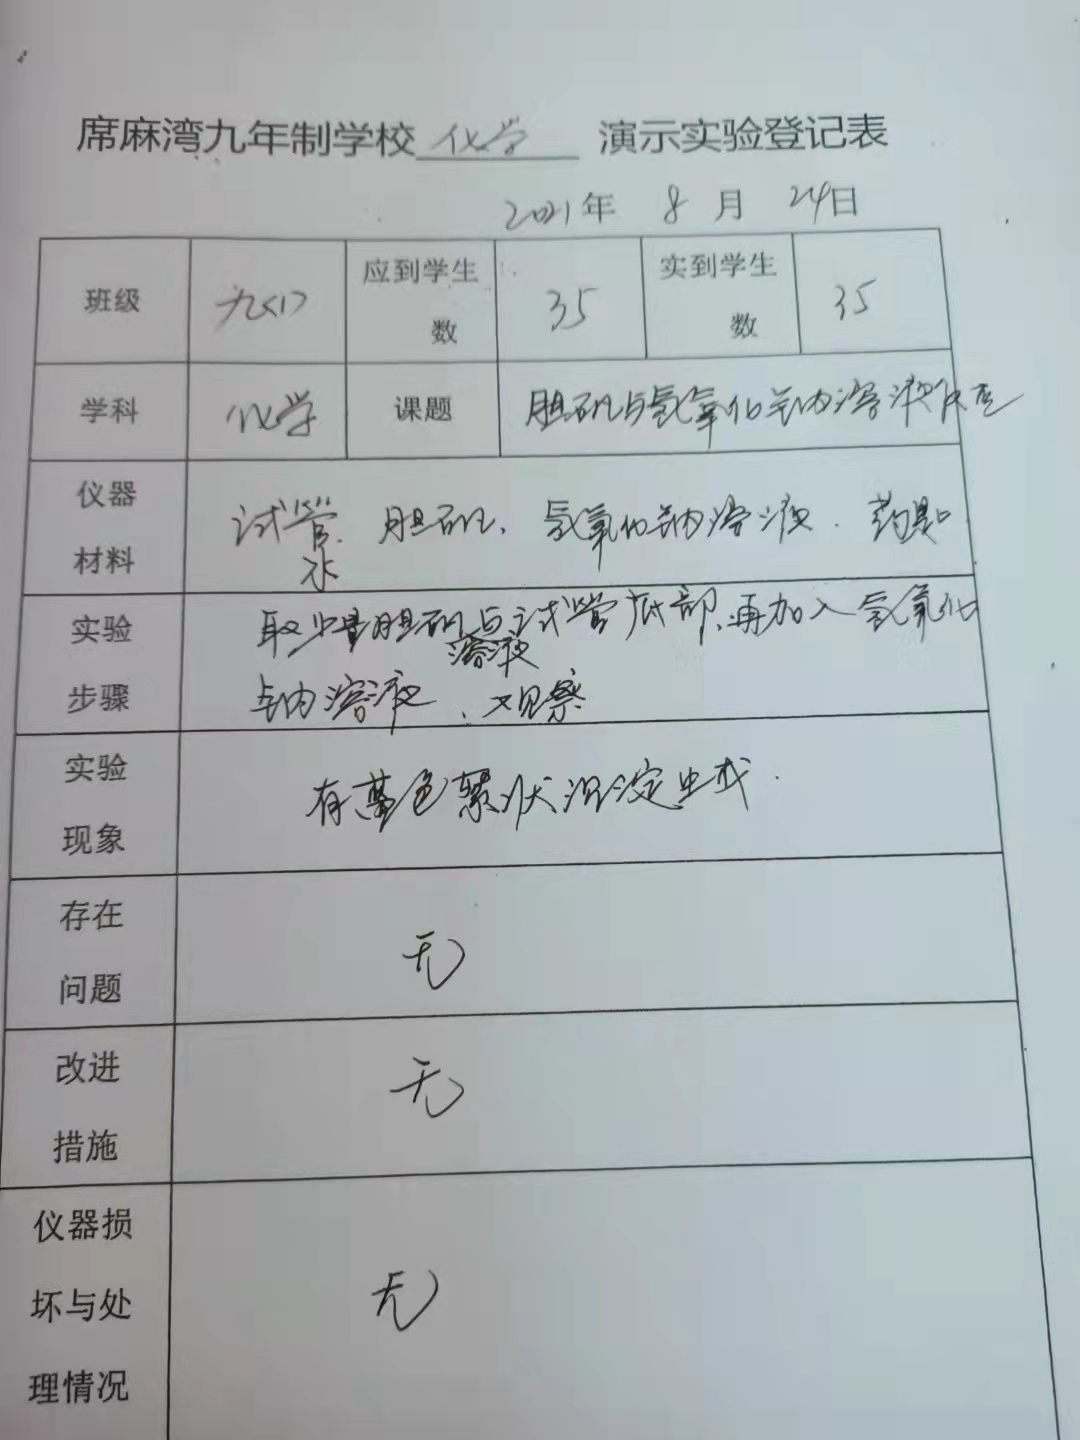 席麻湾九年制学校 化学 演示实验登记表
2021年 8月 24日
班级 九(1) 应到学生数 35 实到学生数 35
学科 化学 课题 胆矾与氢氧化钠溶液反应
仪器
材料
试管、胆矾、氢氧化钠溶液、药匙
水
实验
步骤
取少量胆矾与试管底部、再加入氢氧化
溶液
钠溶液、观察
实验
现象
有蓝色絮状沉淀生成.
存在
问题
无
改进
措施
无
仪器损
坏与处
理情况
无